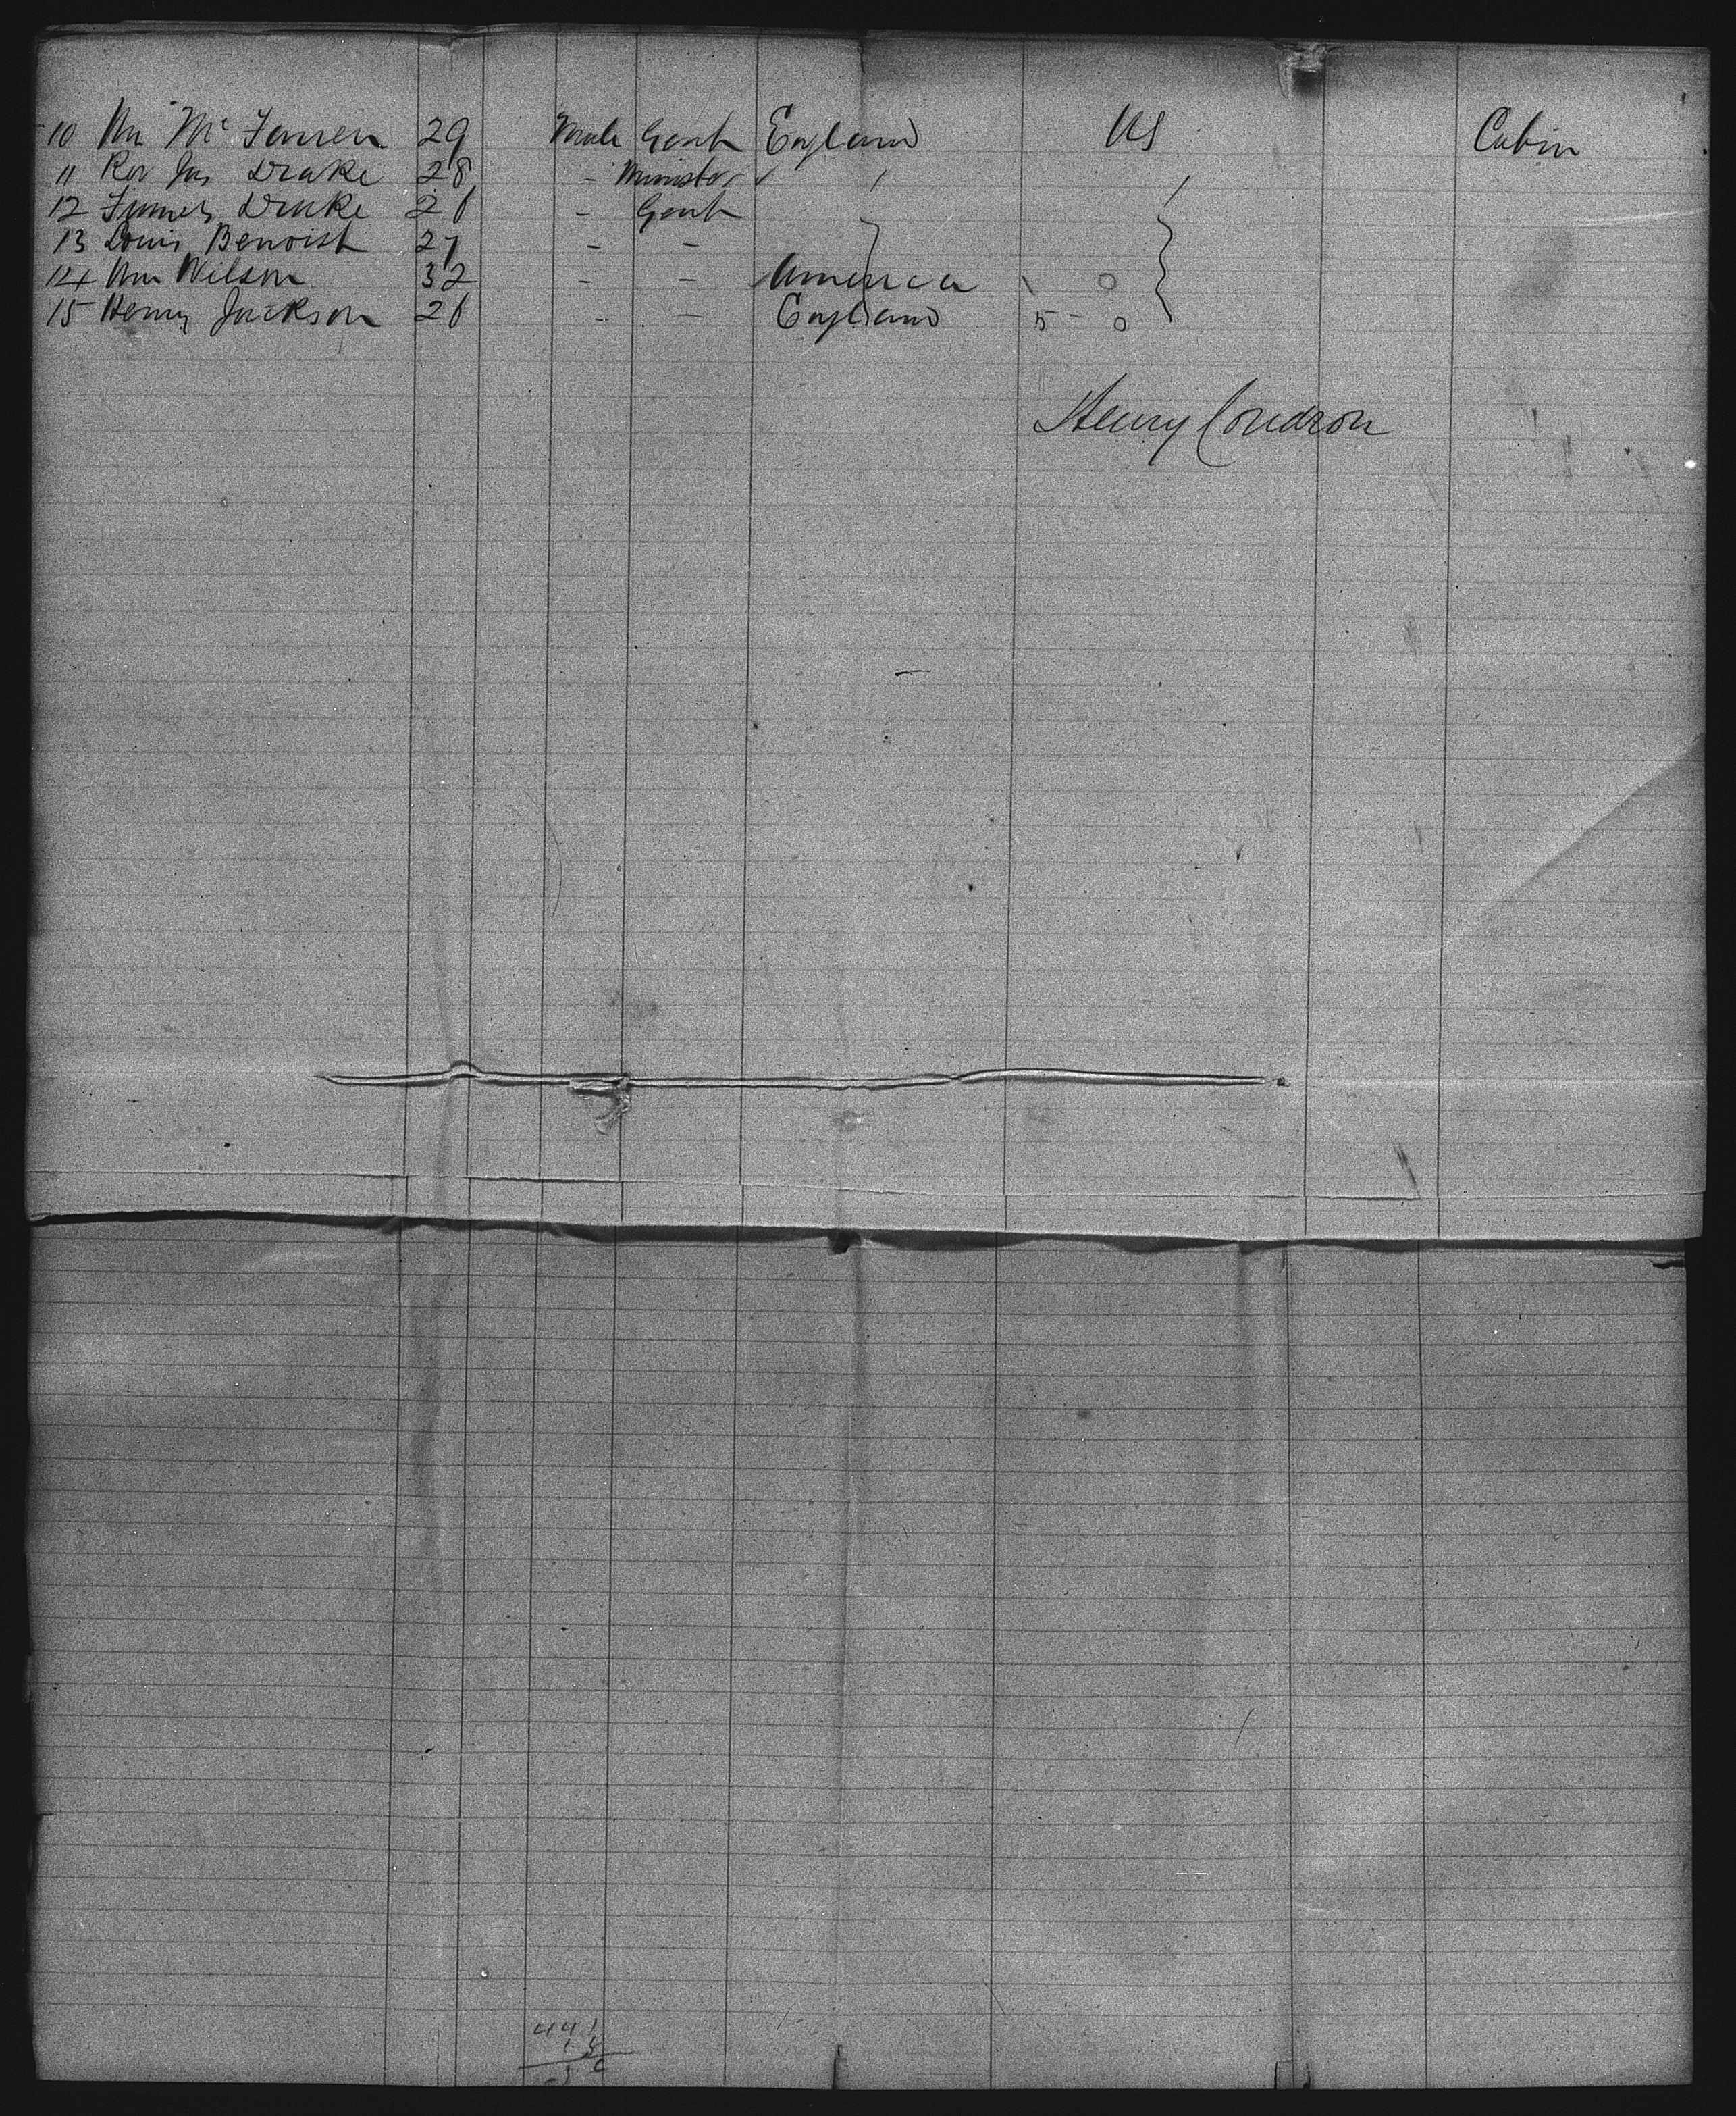 10 Wm Mc 29 Male Gent England US Cabin
11 Rev Jas Drake 28 - Minister
12 James Drake 21 - Gent
13 Louis Benoist 27 - -
14 Wm Wilson 32 - - America
15 Henry Jackson 21 - - England 5 - 0
Henry Condron
441